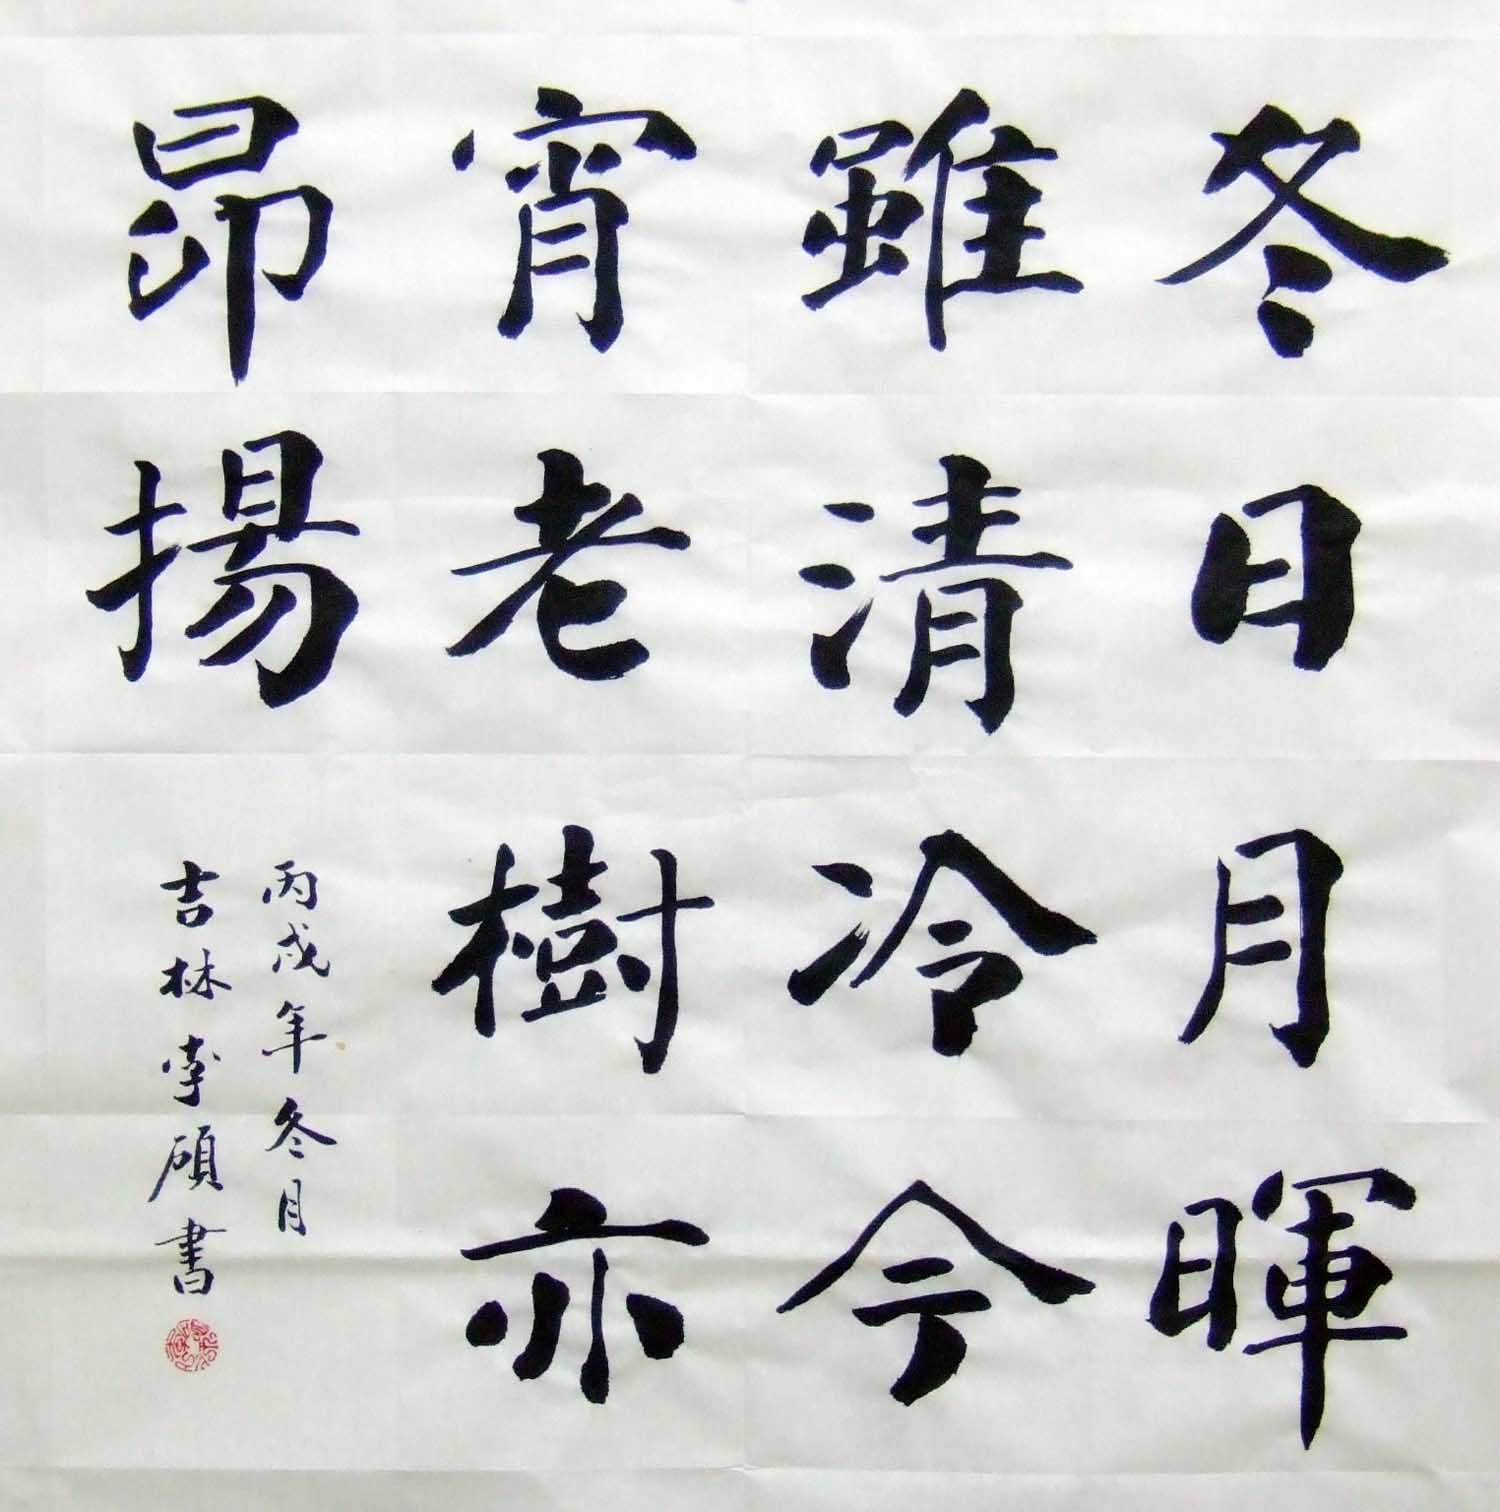 冬日月暉
雖清冷今
宵老樹亦
昂揚
丙戌年冬月
吉林李碩書